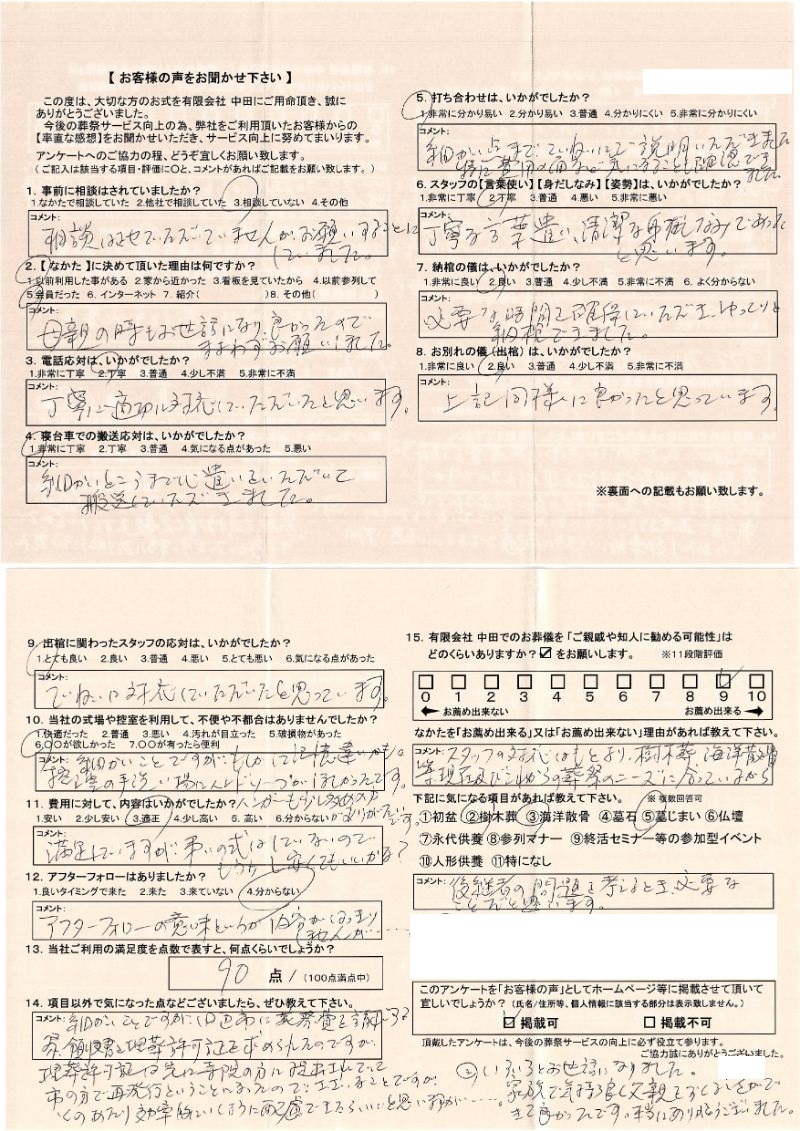 【 お客様の声をお聞かせ下さい 】
この度は、大切な方のお式を有限会社 中田にご用命頂き、誠に
ありがとうございました。
今後の葬祭サービス向上の為、弊社をご利用頂いたお客様からの
【率直な感想】をお聞かせいただき、サービス向上に努めてまいります。
アンケートへのご協力の程、どうぞ宜しくお願い致します。
（ご記入は該当する項目・評価に〇と、コメントがあればご記載をお願い致します。）
1. 事前に相談はされていましたか？
1.なかたで相談していた 2.他社で相談していた 3.相談していない 4.その他
コメント：
相談はせていただいていませんが、お願いすることに
していました。
2.【 なかた 】に決めて頂いた理由は何ですか？
1.以前利用した事がある 2.家から近かった 3.看板を見ていたから 4.以前参列して
5.会員だった 6. インターネット 7. 紹介（ ）8. その他（ ）
コメント：
母親の時もお世話になり、良かったので
まよわずお願いしました。
3. 電話応対は、いかがでしたか？
1.非常に丁寧 2.丁寧 3.普通 4.少し不満 5.非常に不満
コメント：
丁寧に適切に対応していただいたと思います。
4. 寝台車での搬送応対は、いかがでしたか？
1.非常に丁寧 2.丁寧 3.普通 4.気になる点があった 5.悪い
コメント：
細かいところまで心遣いをいただいて
搬送していただきました。
5. 打ち合わせは、いかがでしたか？
1.非常に分かり易い 2.分かり易い 3.普通 4.分かりにくい 5.非常に分かりにくい
コメント：
細かい点まで ていねいにご説明いただきました
特に費用の面など、気になることも確認でき
ました。
6. スタッフの【言葉使い】【身だしなみ】【姿勢】は、いかがでしたか？
1.非常に丁寧 2.丁寧 3.普通 4.悪い 5.非常に悪い
コメント：
丁寧な言葉遣い、清潔な身だしなみであった
と思います。
7. 納棺の儀は、いかがでしたか？
1.非常に良い 2.良い 3.普通 4.少し不満 5.非常に不満 6.よく分からない
コメント：
必要な時間を確保していただき、ゆっくりと
納棺できました。
8. お別れの儀（出棺）は、いかがでしたか？
1.非常に良い 2.良い 3.普通 4.少し不満 5.非常に不満
コメント：
上記同様に良かったと思っています。
※裏面への記載もお願い致します。
9. 出棺に関わったスタッフの応対は、いかがでしたか？
1.とても良い 2.良い 3.普通 4.悪い 5.とても悪い 6.気になる点があった
コメント：
ていねいに対応していただいたと思っています。
10. 当社の式場や控室を利用して、不便や不都合はありませんでしたか？
1.快適だった 2.普通 3.悪い 4.汚れが目立った 5.破損物があった
6.〇〇が欲しかった 7.〇〇が有ったら便利
コメント：
細かいことですが、もしかして記憶違いかも。
控室の手洗い場にハンドソープがほしかったです。
ハンガーも少し多めの方
がありがたいです。
11. 費用に対して、内容はいかがでしたか？
1.安い 2.少し安い 3.適正 4.少し高い 5. 高い 6.分からない
コメント：
満足していますが、弔いの式はしていないので
もう少し安くてもいいかな？
12. アフターフォローはありましたか？
1.良いタイミングで来た 2.来た 3.来ていない 4.分からない
コメント：
アフターフォローの意味というか内容がはっきり
しませんが……
13. 当社ご利用の満足度を点数で表すと、何点くらいでしょうか？
90 点 / （100点満点中）
14. 項目以外で気になった点などございましたら、ぜひ教えて下さい。
コメント：
細かいことですが、旧 市に葬祭費を請求する
際、領収書と埋葬許可証を求められたのですが、
埋葬許可証は先に寺院の方に提出していて
市の方で再発行ということになったので ことですが、
そのあたり効率的にいくように配慮できたらいいと思いますが……。
15. 有限会社 中田でのお葬儀を「ご親戚や知人に勧める可能性」は
どのくらいありますか？ ☑ をお願いします。 ※11段階評価
0 1 2 3 4 5 6 7 8 9 10
お薦め出来ない お薦め出来る
なかたを「お薦め出来る」又は「お薦め出来ない」理由があれば教えて下さい。
コメント：
スタッフの対応はもとより、樹木葬、海洋散骨
等現在及びこれからの葬祭のニーズに合っているから
下記に気になる項目があれば教えて下さい。 ※ 複数回答可
①初盆 ②樹木葬 ③海洋散骨 ④墓石 ⑤墓じまい ⑥仏壇
⑦永代供養 ⑧参列マナー ⑨終活セミナー等の参加型イベント
⑩人形供養 ⑪特になし
コメント：
後継者の問題を考えるとき、必要な
ことだと思います。
このアンケートを「お客様の声」としてホームページ等に掲載させて頂いて
宜しいでしょうか？（氏名/住所等、個人情報に該当する部分は表示致しません。）
☑ 掲載可 ☐ 掲載不可
頂戴したアンケートは、今後の葬祭サービスの向上に必ず役立て参ります。
ご協力誠にありがとうございました。
② いろいろとお世話になりました。
家族で気持ち良く父親をすごすことがで
きて良かったです。本当にありがとうございました。